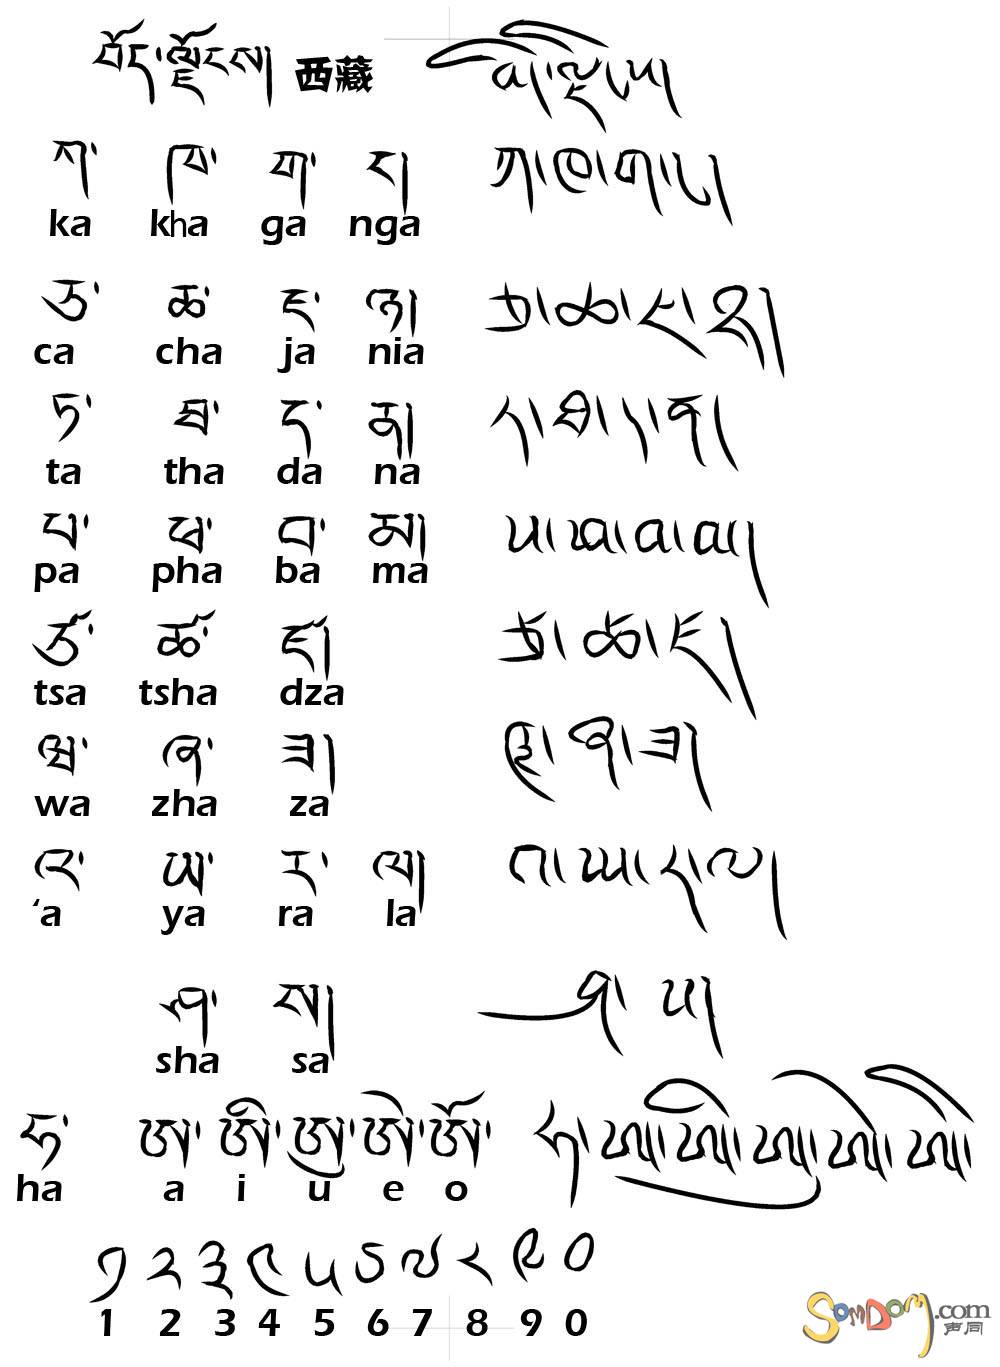 བོད་ལྗོངས། 西藏 བོད་ལྗོངས།
ཀ་ ཁ་ ག་ ང། ཀ་ཁ་ག་ང།
ka kha ga nga
ཅ་ ཆ་ ཇ་ ཉ། ཅ་ཆ་ཇ་ཉ།
ca cha ja nia
ཏ་ ཐ་ ད་ ན། ཏ་ཐ་ད་ན།
ta tha da na
པ་ ཕ་ བ་ མ། པ་ཕ་བ་མ།
pa pha ba ma
ཙ་ ཚ་ ཛ། ཙ་ཚ་ཛ།
tsa tsha dza
ཝ་ ཞ་ ཟ། ཝ་ཞ་ཟ།
wa zha za
འ་ ཡ་ ར་ ལ། འ་ཡ་ར་ལ།
‘a ya ra la
ཤ་ ས། ཤ་ ས།
sha sa
ཧ་ ཨ་ ཨི་ ཨུ་ ཨེ་ ཨོ་ ཧ་ཨ་ཨི་ཨུ་ཨེ་ཨོ།
ha a i u e o
༡ ༢ ༣ ༤ ༥ ༦ ༧ ༨ ༩ ༠
1 2 3 4 5 6 7 8 9 0
SomDom.com
声同